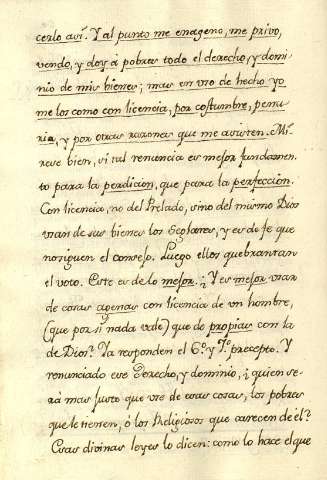 cerlo así. Y al punto me enageno, me privo,
vendo, y doy á pobres todo el derecho, y domi-
nio de mis bienes; mas en uso de hecho yo
me los como con licencia, por costumbre, penu-
ria, y por otras razones que me asisten. Mí-
rese bien, si tal renuncia es mejor fundamen-
to para la perdicion, que para la perfeccion.
Con licencia, no del Prelado, sino del mismo Dios
usan de sus bienes los Seglares, y es de fe que
no siguen el consejo. Luego ellos quebrantan
el voto. Este es de lo mejor. ¿Y es mejor usar
de cosas agenas con licencia de un hombre,
(que por sí nada vale) que de propias con la
de Dios? Ya responden el 6.º y 7.º precepto. Y
renunciado ese derecho, y dominio, ¿quien se-
rá mas justo que use de esas cosas, los pobres
que le tienen, ó los Religiosos que carecen de él?
Esas divinas leyes lo dicen: como lo hace el que